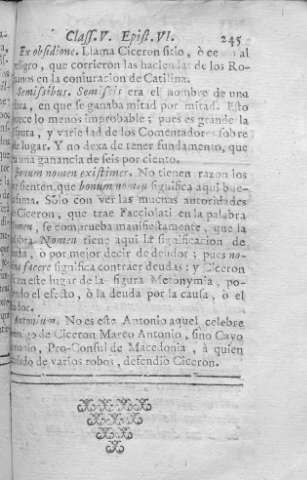 Class. V. Epist. VI. 245
Ex obsidione. Llama Ciceron sitio, ò ce al
peligro, que corrieron las haciendas de los Ro-
manos en la conjuracion de Catilina.
Semissibus. Semissis era el nombre de una
, en que se ganaba mitad por mitad. Esto
ece lo menos improbable; pues es grande la
ura, y variedad de los Comentadores sobre
e lugar. Y no dexa de tener fundamento, que
una ganancia de seis por ciento.
bonum nomen existimer. No tienen razon los
e sienten que bonum nomen significa aqui bue-
 fama. Solo con ver las muchas autoridades
e Ciceron, que trae Facciolati en la palabra
Nomen, se comprueba manifiestamente, que la
palabra Nomen tiene aqui la significacion de
deuda, ò por mejor decir de deudor; pues no-
men facere significa contraer deudas; y Ciceron
en este lugar de la figura Metonymia, po-
niendo el efecto, ò la deuda por la causa, ò el
 Antonium. No es este Antonio aquel celebre
enemigo de Ciceron Marco Antonio, sino Cayo
Antonio, Pro-Consul de Macedonia, à quien
 de varios robos, defendio Ciceron.